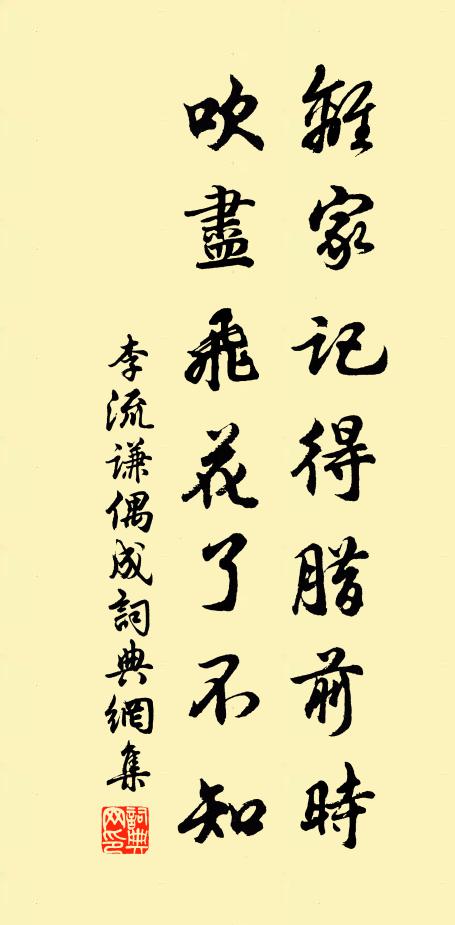 離家記得腊前時
吹盡飛花了不知
李流谦偶成詞典網集
詞典网印